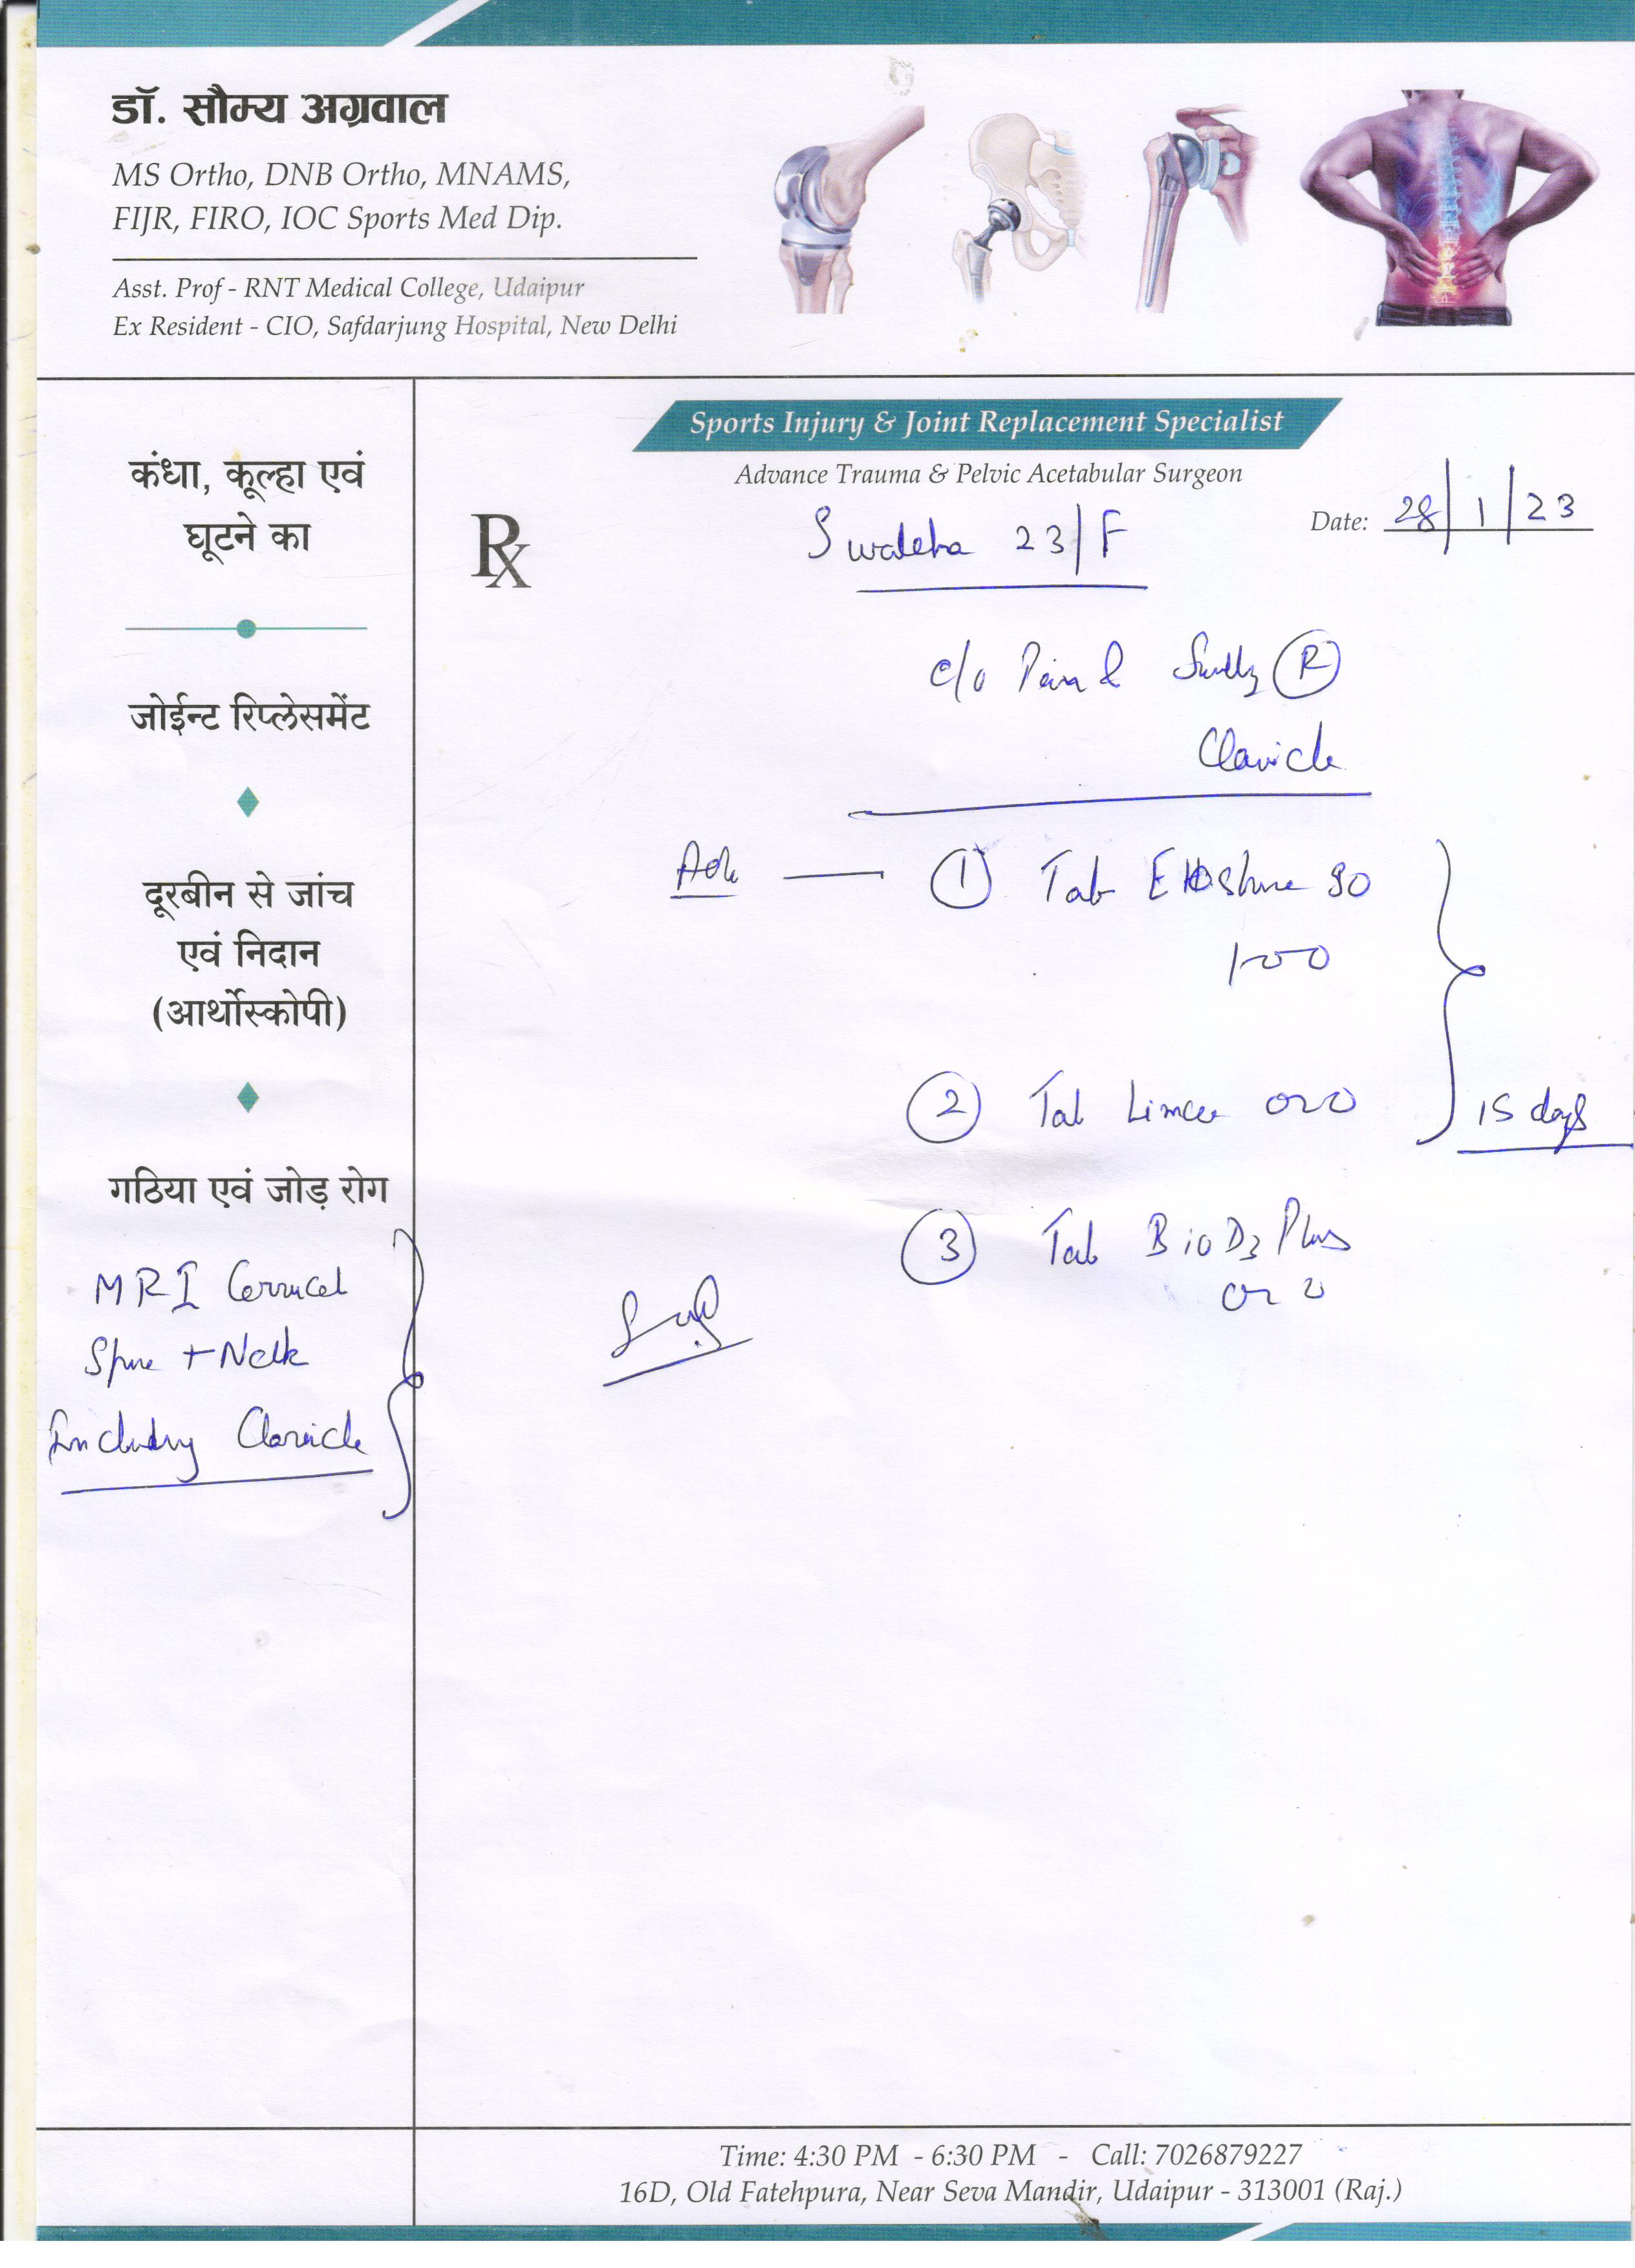 डॉ. सौम्य अग्रवाल
MS Ortho, DNB Ortho, MNAMS,
FIJR, FIRO, IOC Sports Med Dip.
Asst. Prof - RNT Medical College, Udaipur
Ex Resident - CIO, Safdarjung Hospital, New Delhi
Sports Injury & Joint Replacement Specialist
Advance Trauma & Pelvic Acetabular Surgeon
Date: 28/1/23
Rx
23/F
c/o Pain & Swelling R
Clavicle
1 Tab Etoshine 90
100
2 Tab Limcee 010
15 days
3 Tab BioD3 Plus
010
कंधा, कूल्हा एवं
घूटने का
जोईन्ट रिप्लेसमेंट
दूरबीन से जांच
एवं निदान
(आर्थोस्कोपी)
गठिया एवं जोड़ रोग
MRI Cervical
Spine + Neck
Including Clavicle
Time: 4:30 PM - 6:30 PM - Call: 7026879227
16D, Old Fatehpura, Near Seva Mandir, Udaipur - 313001 (Raj.)